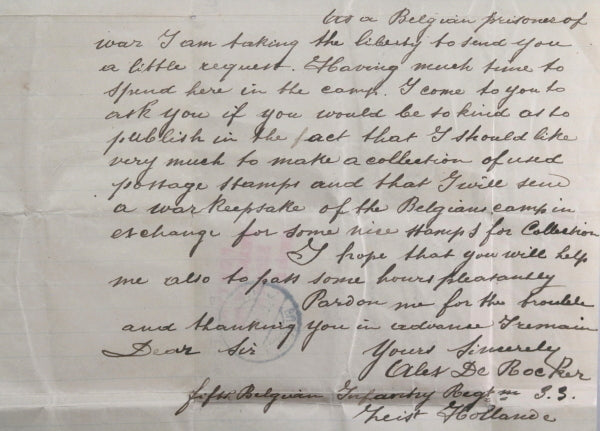 As a Belgian prisoner of
war I am taking the liberty to send you
a little request. Having much time to
spend here in the camp. I come to you to
ask you if you would be so kind as to
publish in the fact that I should like
very much to make a collection of used
postage stamps and that I will send
a war keepsake of the Belgians camp in
exchange for some nice stamps for Collection
I hope that you will help
me also to pass some hours pleasantly
Pardon me for the trouble
and thanking you in advance I remain
Dear Sir Yours Sincerely
Alex De Rocker
fifth Belgian Infantry Regt
Zeist Hollande